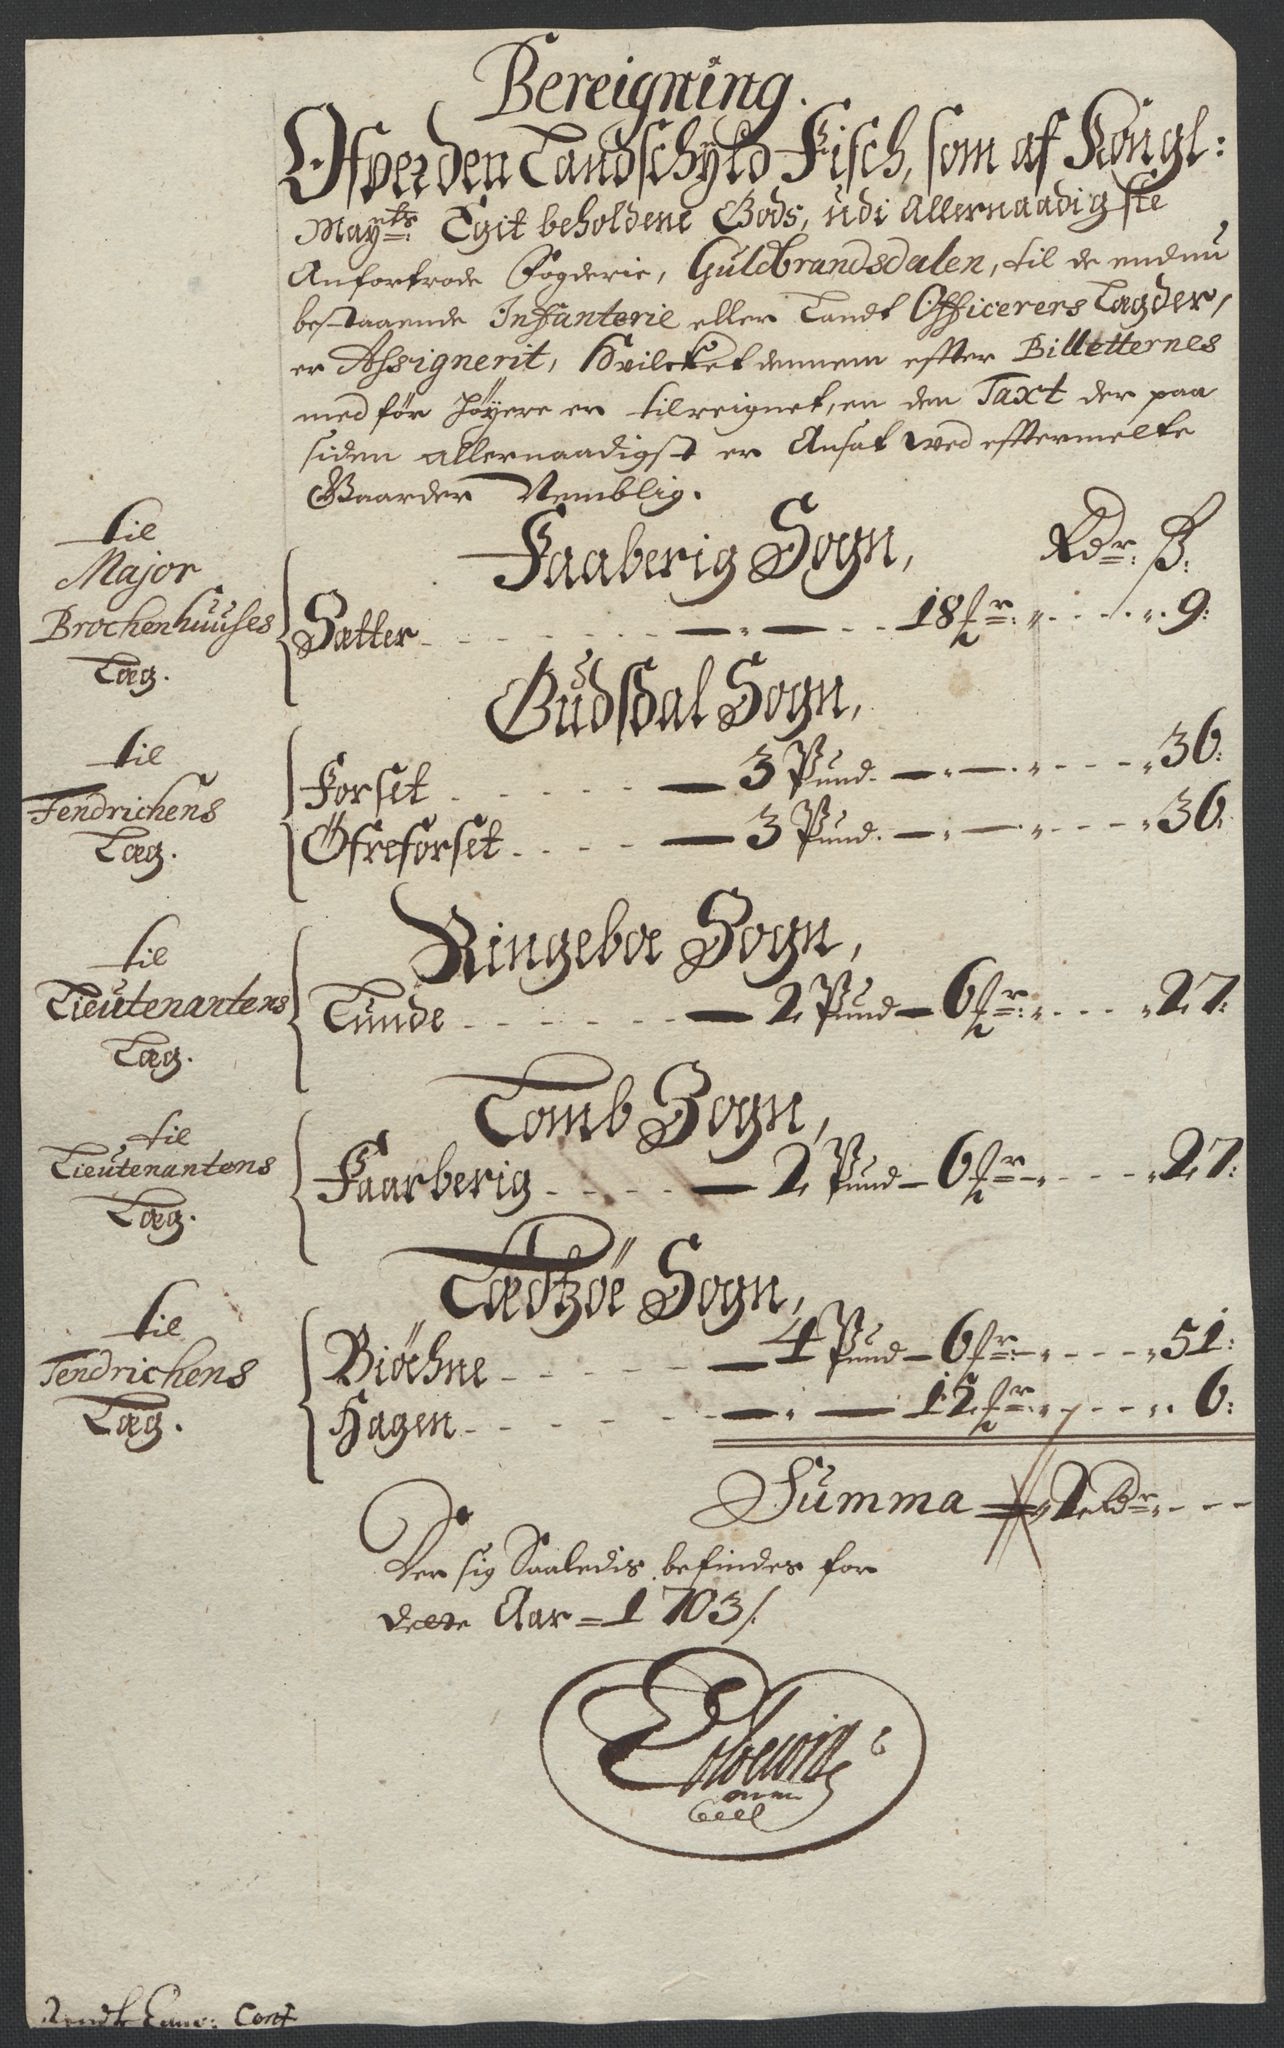 Bereigning.
Ofver den Landschyld Fisch, som af Kongl:
Mayts: Egit beholdene Gods, udi Allernaadigste
Anfortrode Fogderie, Guldbrandsdalen, til de endnu
bestaaende Infanterie eller Landt Officerers Lægder,
er Assignerit, Hvilcket dennem efter Billetternes
med før høyere er tilreignet, en den Taxt der paa
siden allernaadigst er Ansat wed efftermelte
Gaarder Nemblig.
Faaberig Sogn, Rdr: ß:
til
Major
Brochenhuuses
Læg.
Sætter 18 fr: 9:
Gudsdal Sogn,
til
Fendrichens
Læg.
Forset 3 Pund 36:
Öfreforset 3 Pund 36:
Ringeboe Sogn,
til
Lieutenantens
Læg.
Lunde 2 Pund 6 fr: 27:
Lomb Sogn,
til
Lieutenantens
Læg.
Faarberig 2 Pund 6 fr 27:
Lædtzöe Sogn,
til
Fendrichens
Læg.
Biöchne 4 Pund 6 fr: 51:
Hagen 12 fr: 6:
Summa 2 Rdr
Der sig Saaledis befindes for
dette Aar = 1703/.